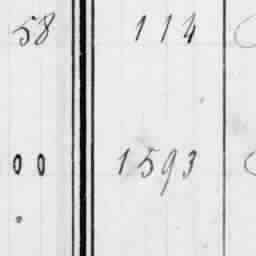 58 114
00 1593